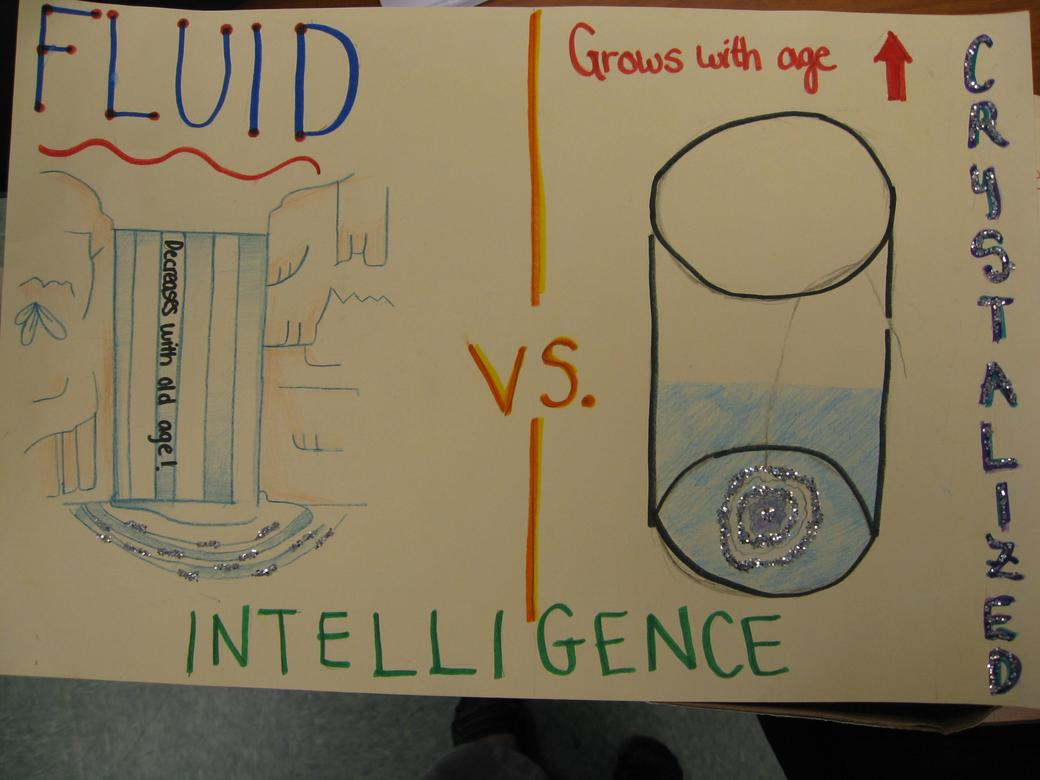 FLUID
Decreases with old age!
VS.
Grows with age
CRYSTALIZED
INTELLIGENCE